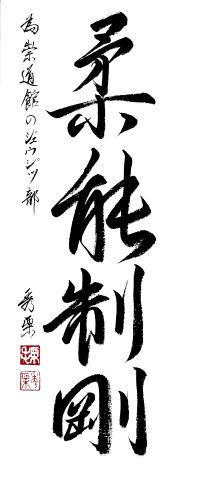 柔能制剛
為崇道館のジウジツ部
秀栗